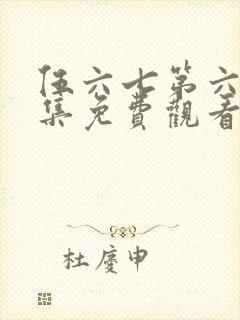 伍六七第六
集免費觀看
杜慶申